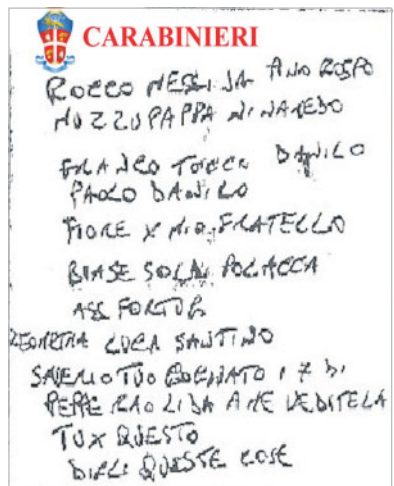 CARABINIERI
ROCCO MESSINA
NUZZUPAPPA NINAREDO
FRANCO DANILO
PAOLO DANILO
FIORE X MIO FRATELLO
BIASE POLACCA
ASS FORTUR
GEOMETRA LUCA SANTINO
SAVERIO TUO COGNATO I 7 DI
PEPPE RAOLI DA A ME VEDITELA
TU X QUESTO
DIRLI QUESTE COSE